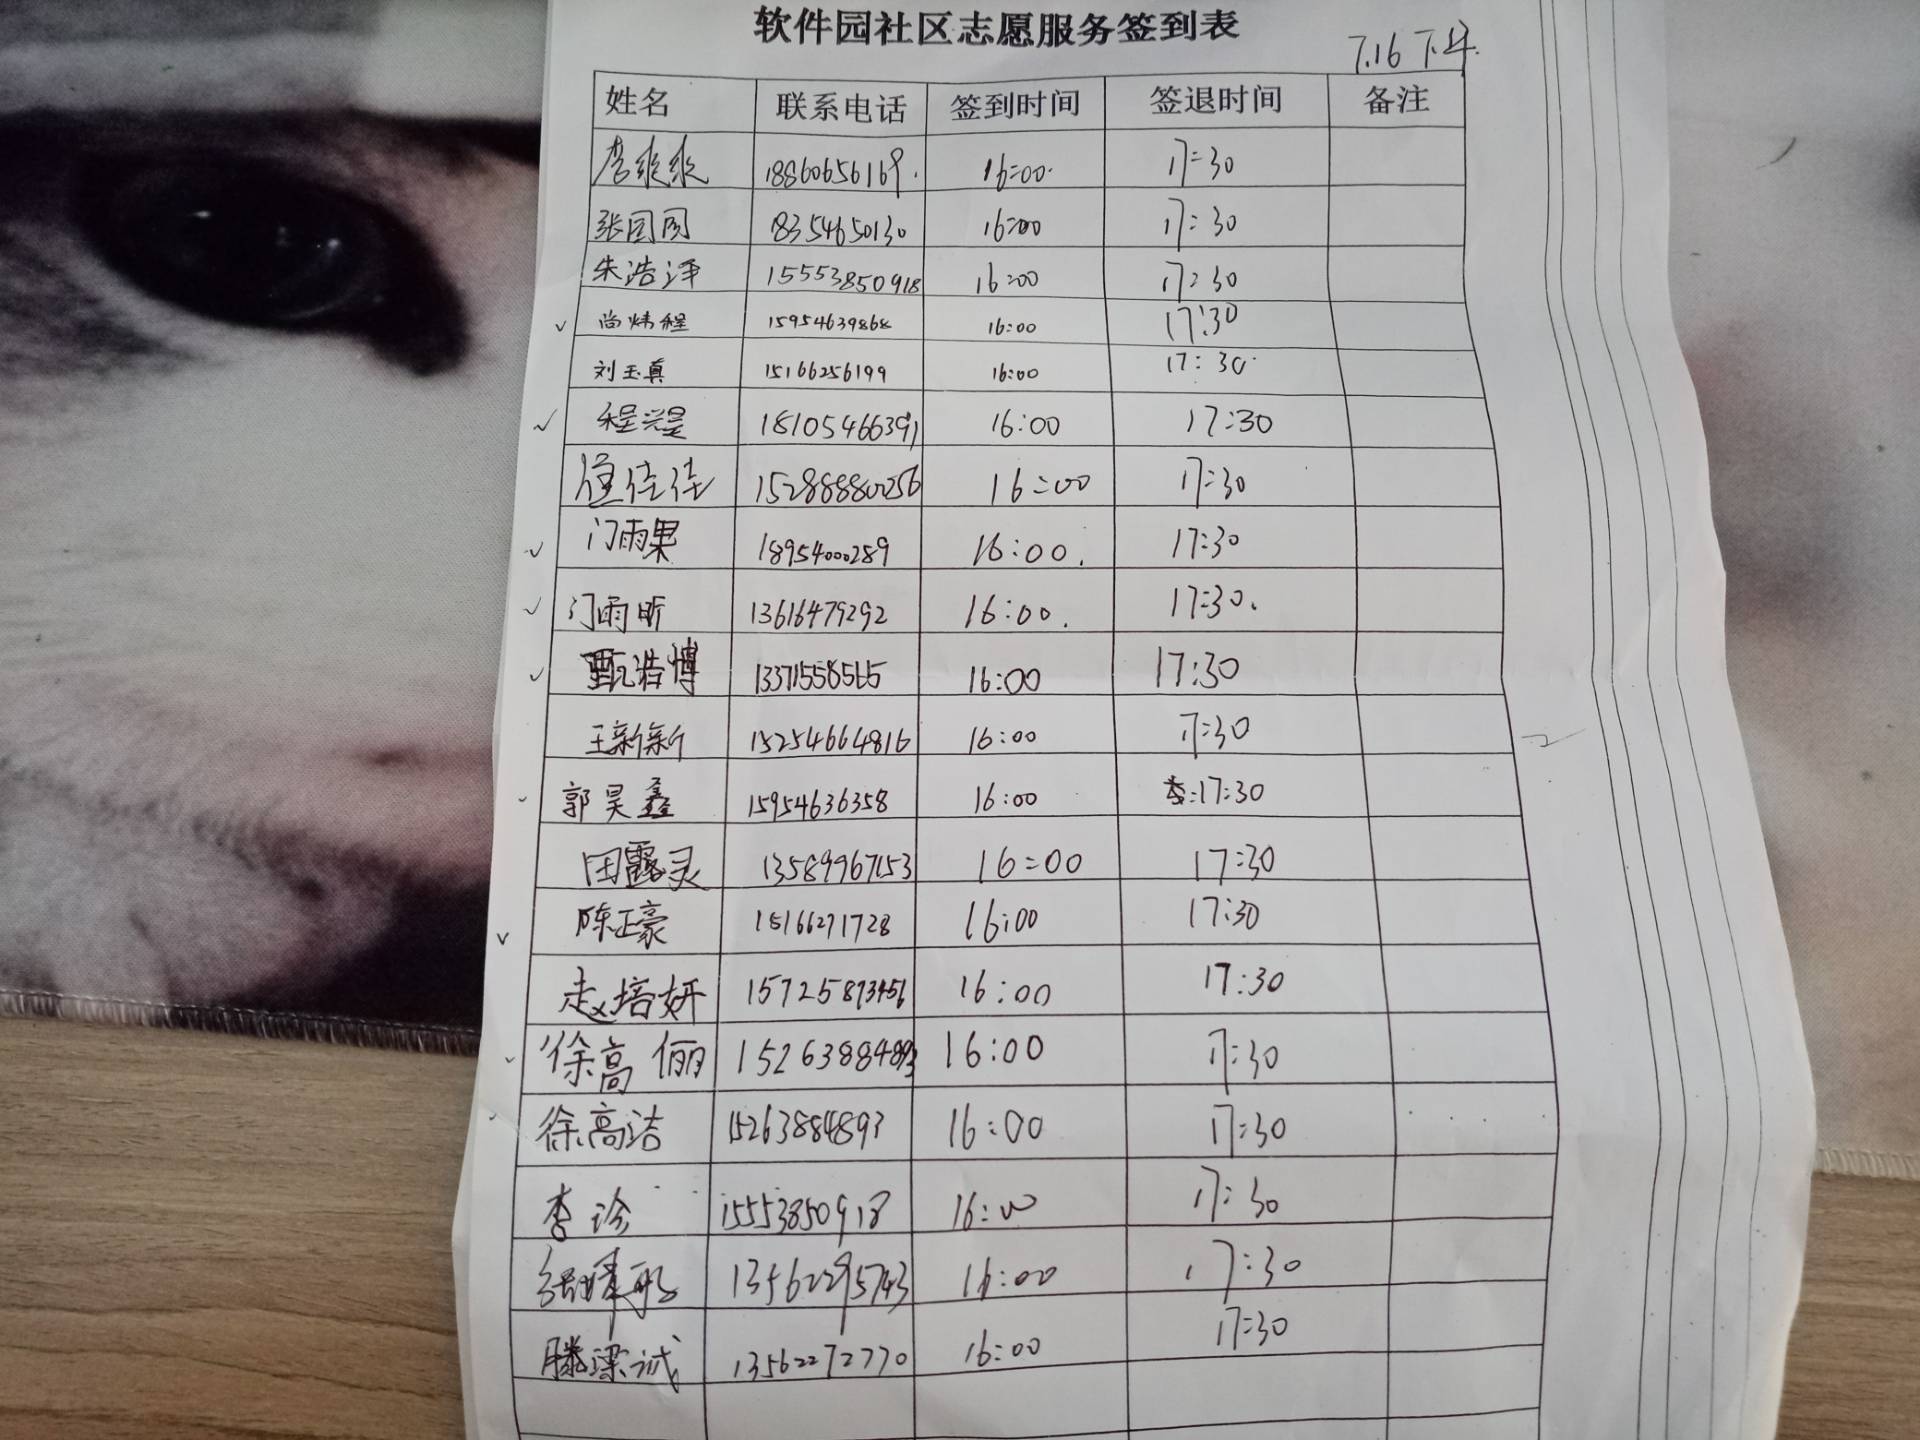 软件园社区志愿服务签到表
7.16 下午
姓名 联系电话 签到时间 签退时间 备注
李纵纵 18860656169. 16:00. 17:30
张国图 18354650130 16:00 17:30
朱浩泽 15553850918 16:00 17:30
尚炜程 15954639868 16:00 17:30
刘玉真 15166256199 16:00 17:30
程兴昱 18105466391 16:00 17:30
佳佳 15288880256 16:00 17:30
门雨果 18954000289 16:00. 17:30
门雨昕 13616479292 16:00. 17:30.
甄浩博 13371558565 16:00 17:30
王新新 15254664816 16:00 17:30
郭昊鑫 15954636358 16:00 17:30
田露灵 13589967153 16:00 17:30
陈正豪 15166271728 16:00 17:30
赵培妍 15725873456 16:00 17:30
徐高俪 15263884893 16:00 17:30
徐高洁 15263884893 16:00 17:30
李诊 15553850918 16:00 17:30
13562295743 16:00 17:30
滕梁诚 13562272770 16:00 17:30